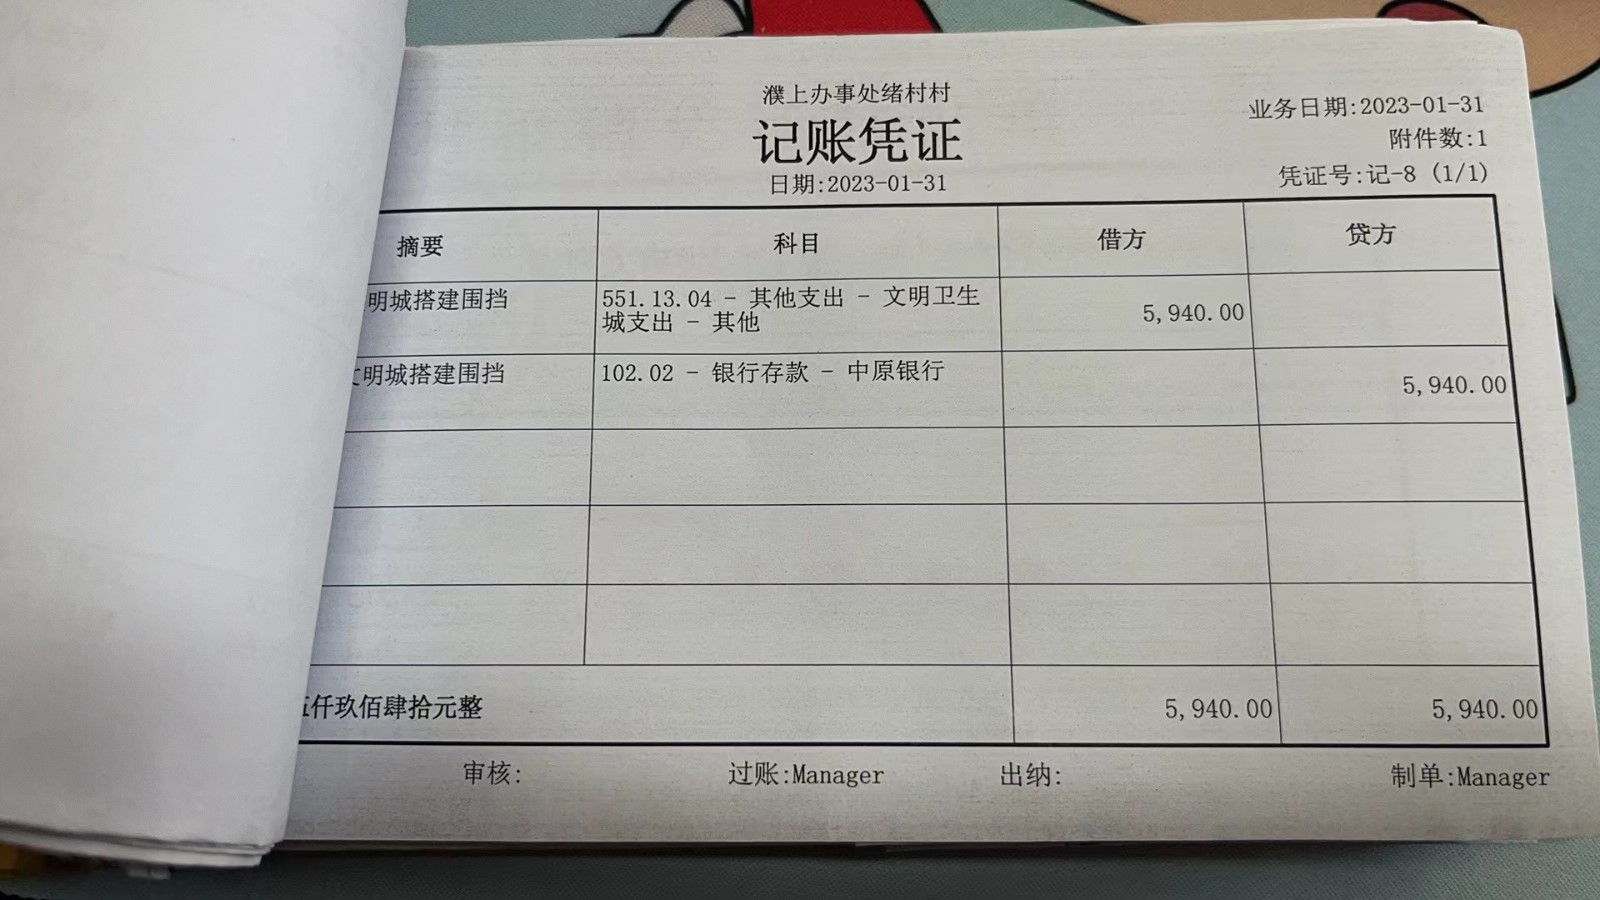 濮上办事处绪村村
记账凭证
日期:2023-01-31
业务日期:2023-01-31
附件数:1
凭证号:记-8 (1/1)
摘要 科目 借方 贷方
明城搭建围挡 551.13.04 - 其他支出 - 文明卫生 5,940.00
城支出 - 其他
文明城搭建围挡 102.02 - 银行存款 - 中原银行 5,940.00
伍仟玖佰肆拾元整 5,940.00 5,940.00
审核: 过账:Manager 出纳: 制单:Manager